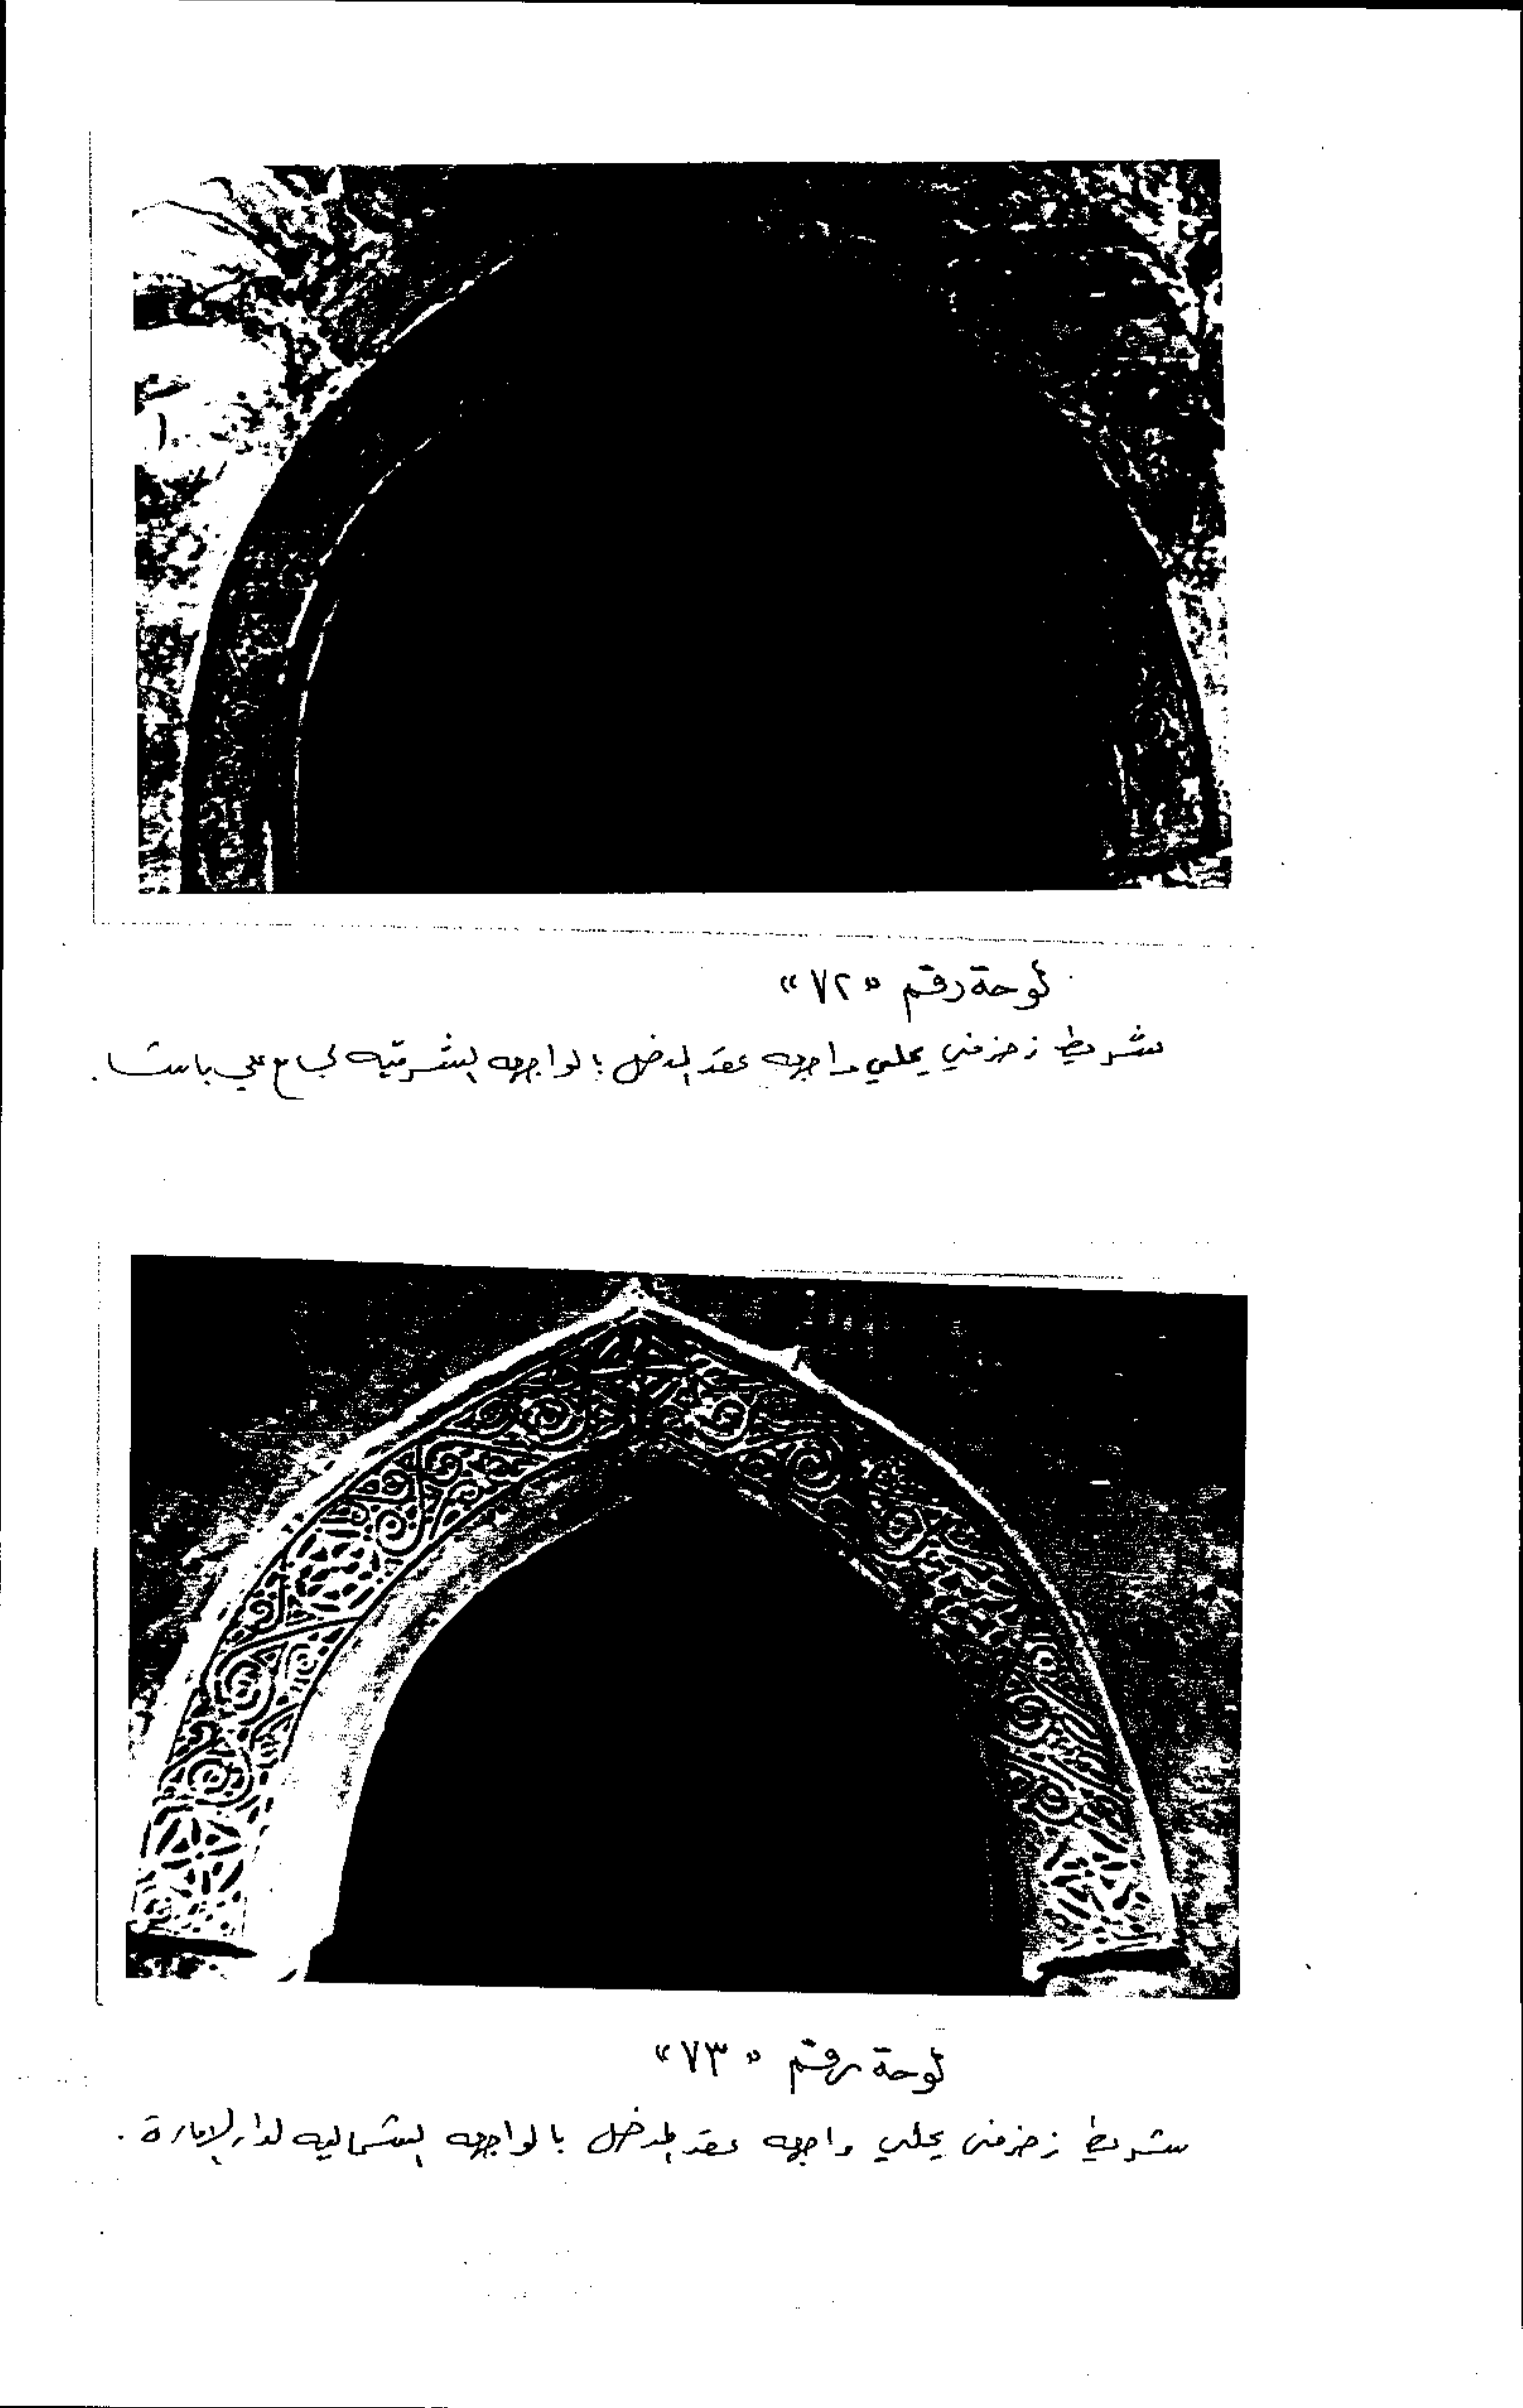 لوحة رقم «٧٢»
شريط زخرفي يحلي واجهه عقد المدخل بالواجهه الشرقيه لجامع علي باشا .
لوحة رقم «٧٣»
شريط زخرفى يحلي واجهه عقد المدخل بالواجهه الشماليه لدار الإمارة .